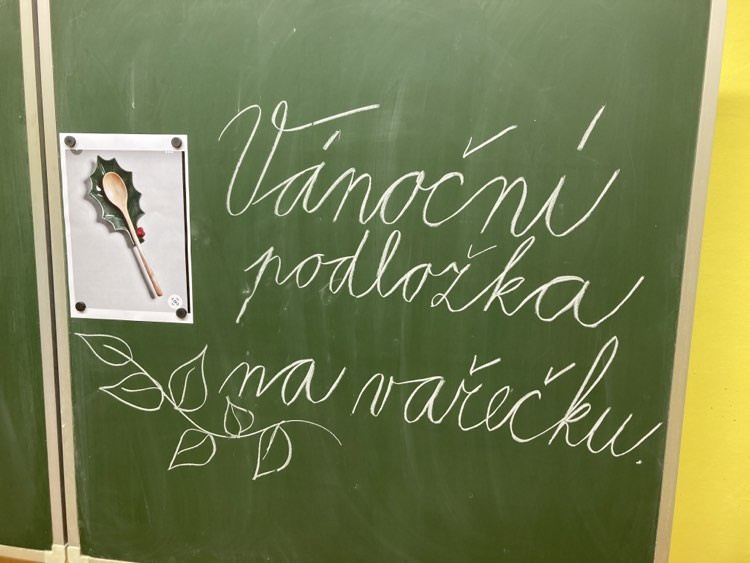 Vánoční
podložka
na vařečku.